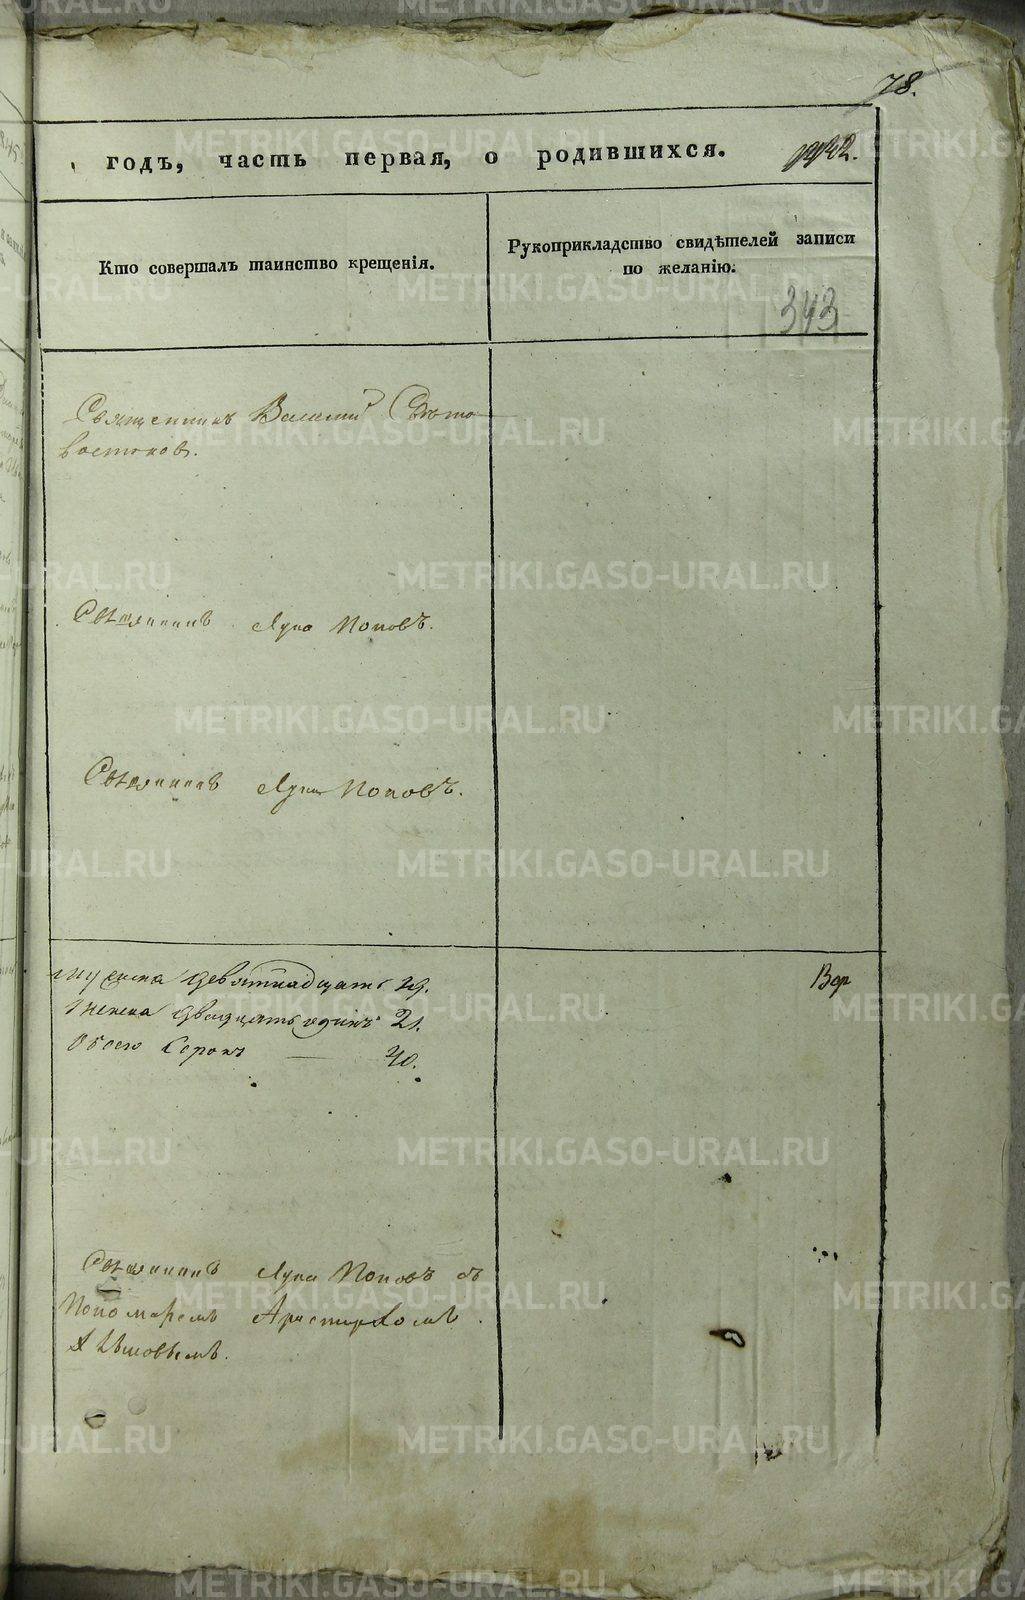 78.
годъ, часть первая, о родившихся.
Кто совершалъ таинство крещенія.
Рукоприкладство свидѣтелей записи
по желанію.
343
Священникъ Василій Свѣто
востоковъ.
Священникъ Лука Поповъ.
Священникъ Лука Поповъ.
Мужска девятнадцать 19.
Женска двадцать одинъ 21.
Обоего Сорокъ — 40.
Священникъ Лука Поповъ съ
Пономаремъ Аристархомъ
METRIKI.GASO-URAL.RU